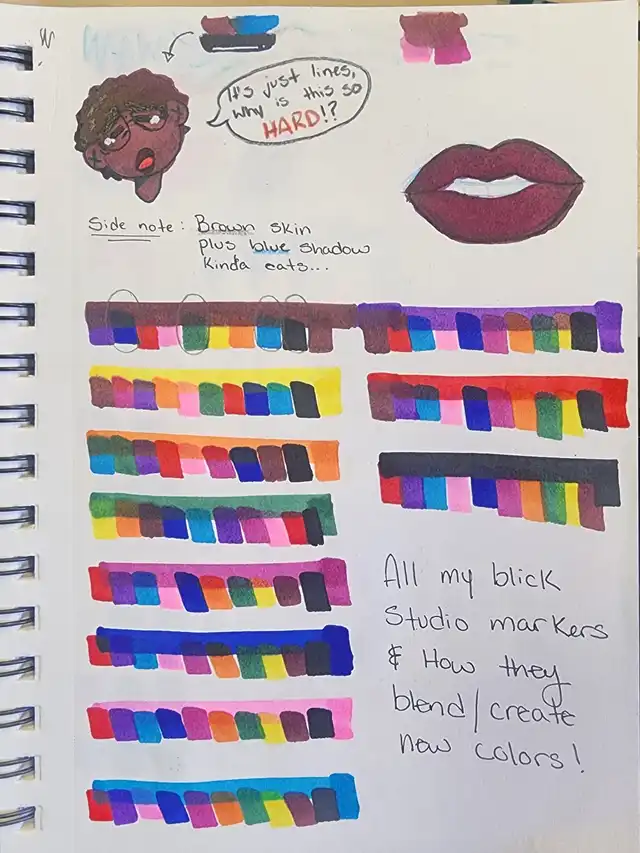 It's just lines,
why is this so
HARD!?
Side note: Brown skin
plus blue shadow
kinda eats...
All my blick
Studio markers
& How they
blend/create
new colors!